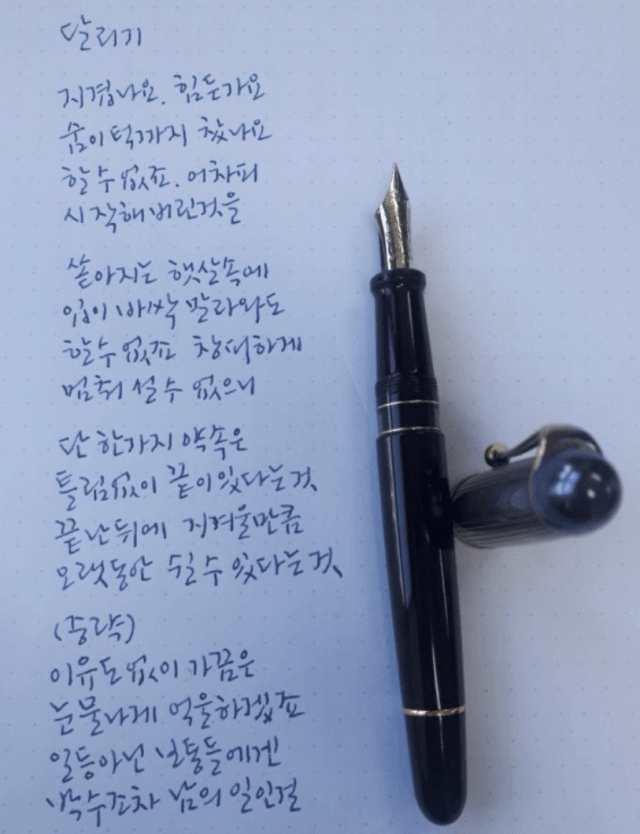 달리기
지겹나요. 힘든가요
숨이 턱까지 찼나요
할 수 없죠. 어차피
시작해 버린것을
쏟아지는 햇살속에
입이 바싹 말라와도
할 수 없죠 창대하게
멈춰 설 수 없으니
단 한가지 약속은
틀림없이 끝이 있다는 것
끝난뒤에 지겨울만큼
오랫동안 쉴 수 있다는 것
(중략)
이유도 없이 가끔은
눈물나게 억울하겠죠
일등아닌 보통들에겐
박수조차 남의 일인걸